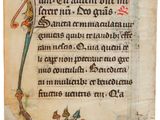 seret nri. Deo gras.
Sancta et immaculata vir
ginitas quibus te laudibus
referam nescio quia quem
celi capere non poterant tuo
gremio contulisti. Benedicta
tu in mulieribus et benedictus
fructus ventris tui.